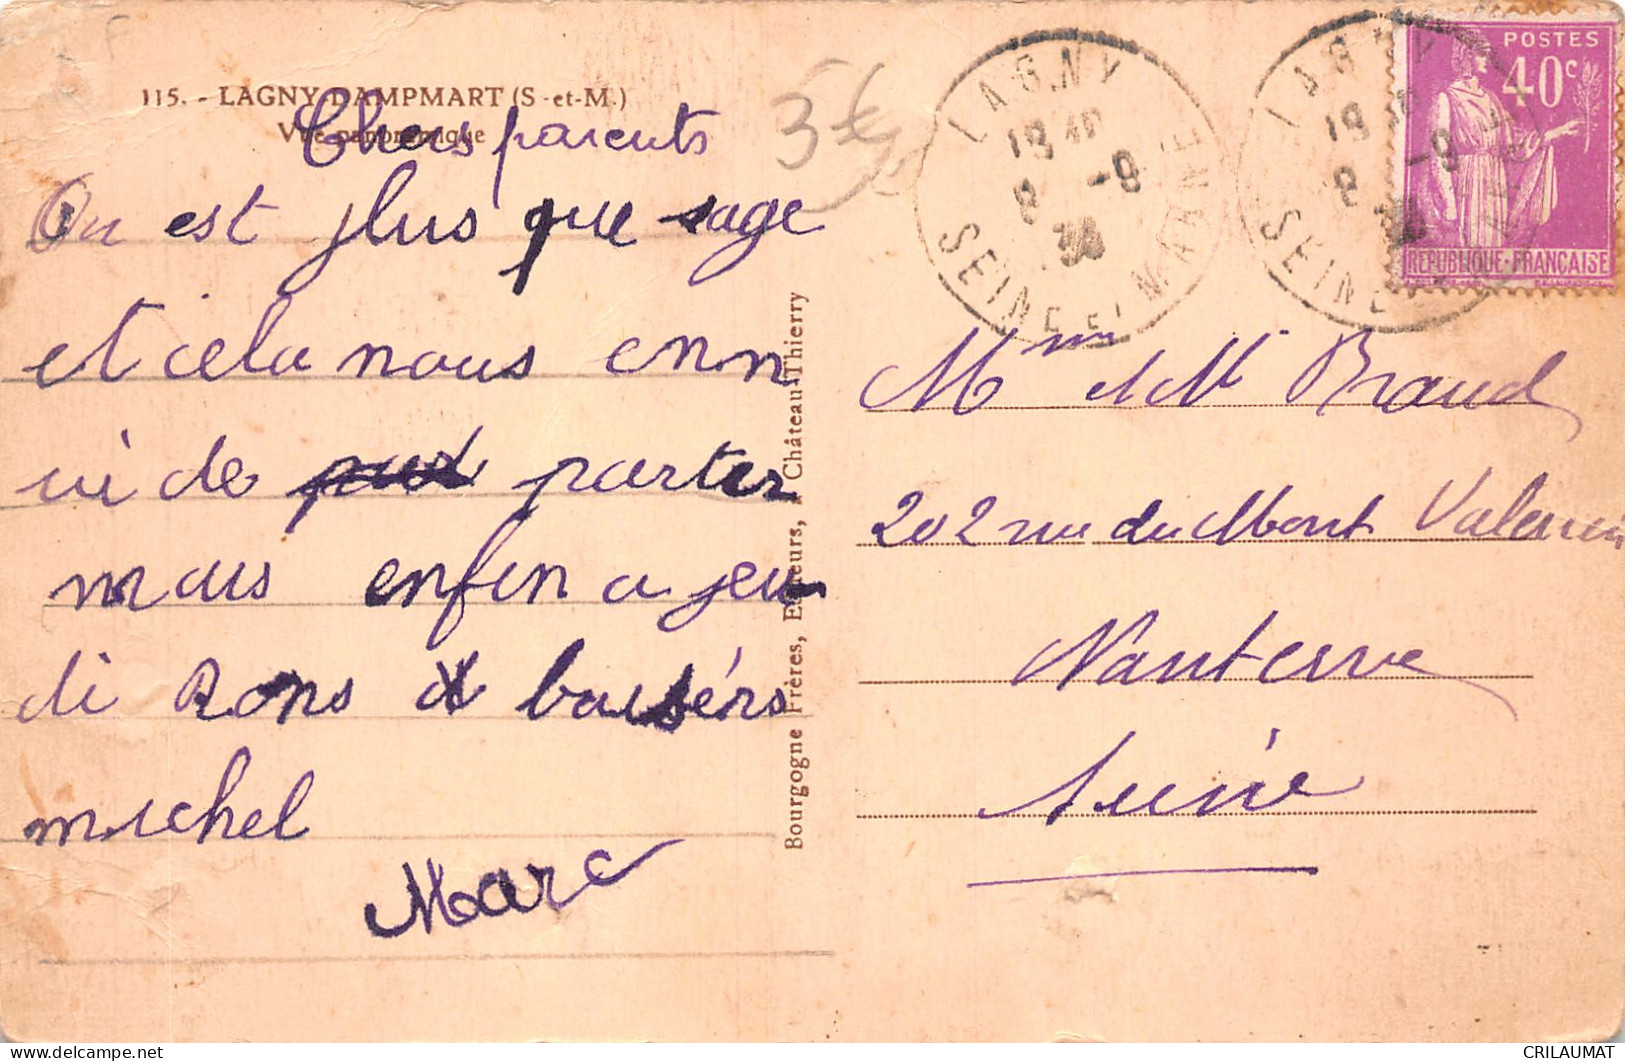 115. - LAGNY-DAMPMART (S.-et-M.)
Vue panoramique
Chers parents
On est plus que sage
et cela nous enn
ui de partir
mais enfin a jeu
di Bons baisérs
michel
Marc
Bourgogne Frères, Editeurs, Château-Thierry
3€
LAGNY
SEINE ET MARNE
LAGNY
SEINE ET MARNE
POSTES
40c
REPUBLIQUE-FRANÇAISE
Mme et Mr Braud
202 rue du Mont Valerien
Nanterre
Seine
CRILAUMAT